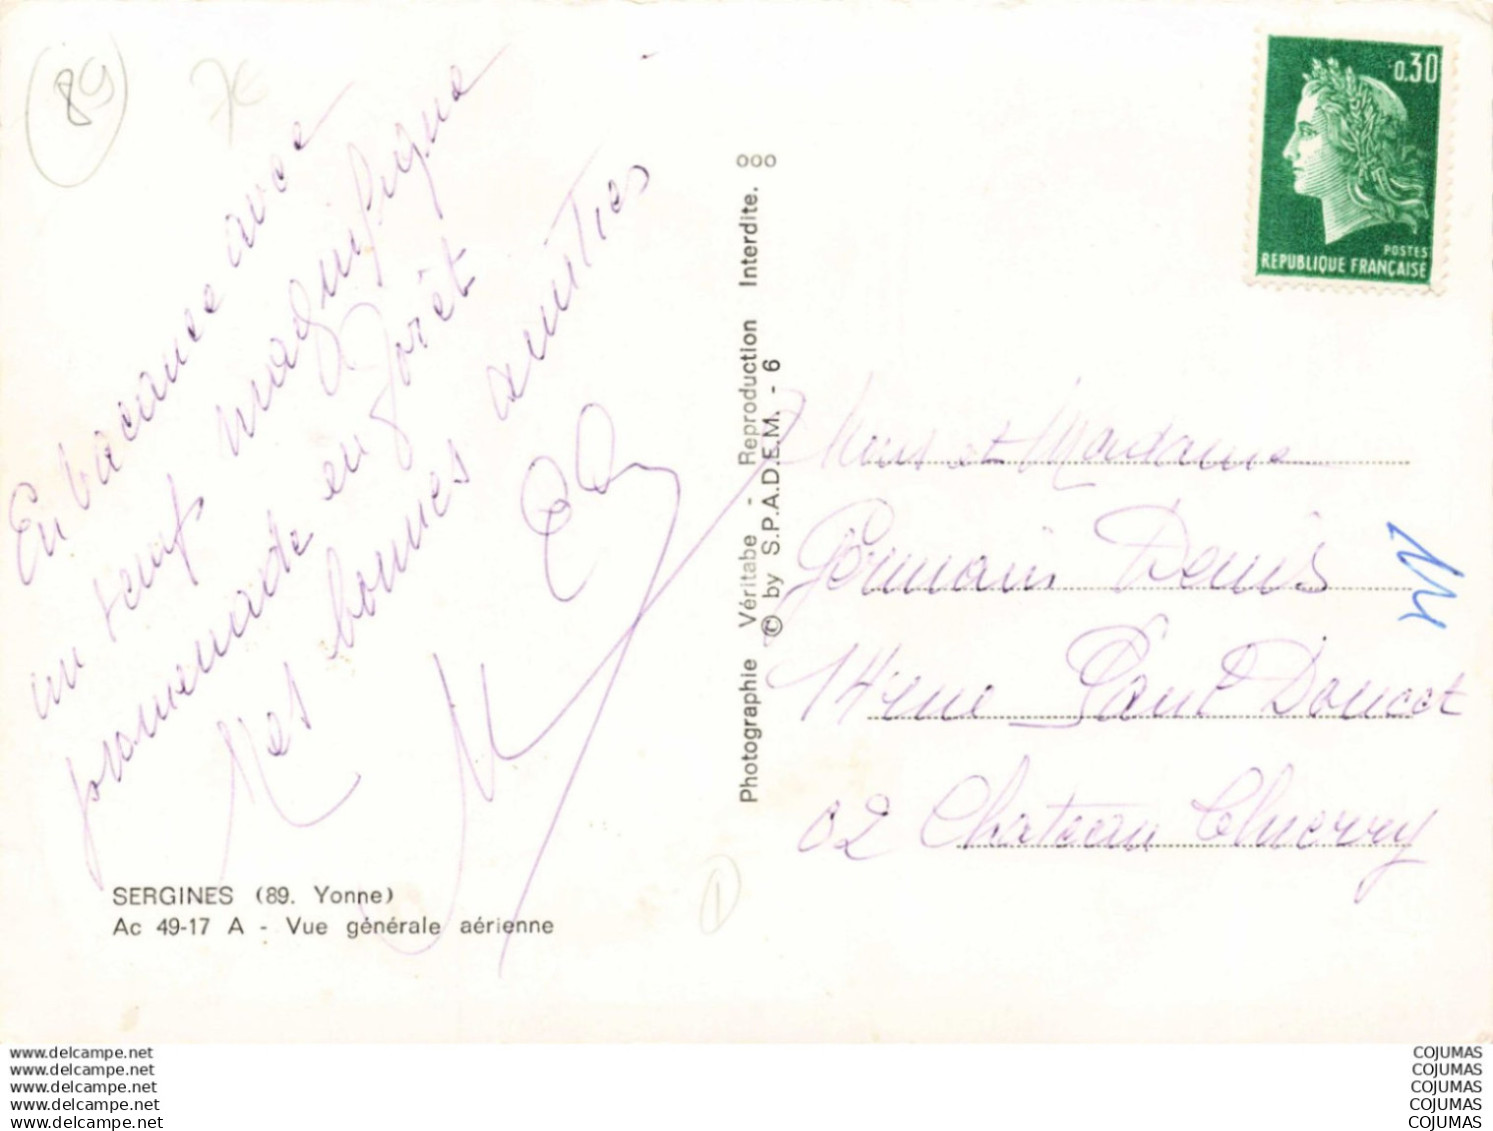 89
7€
En vacance avec
un temps magnifique
promenade en forêt
Mes bonnes amitiés
SERGINES (89. Yonne)
Ac 49-17 A - Vue générale aérienne
Photographie Véritabe - Reproduction Interdite. ooo
© by S.P.A.D.E.M. - 6
0,30
POSTES
REPUBLIQUE FRANÇAISE
Mons et Madame
Germain Denis
14 rue Paul Doucet
02 Chateau Thierry
1
www.delcampe.net
www.delcampe.net
www.delcampe.net
www.delcampe.net
www.delcampe.net
COJUMAS
COJUMAS
COJUMAS
COJUMAS
COJUMAS